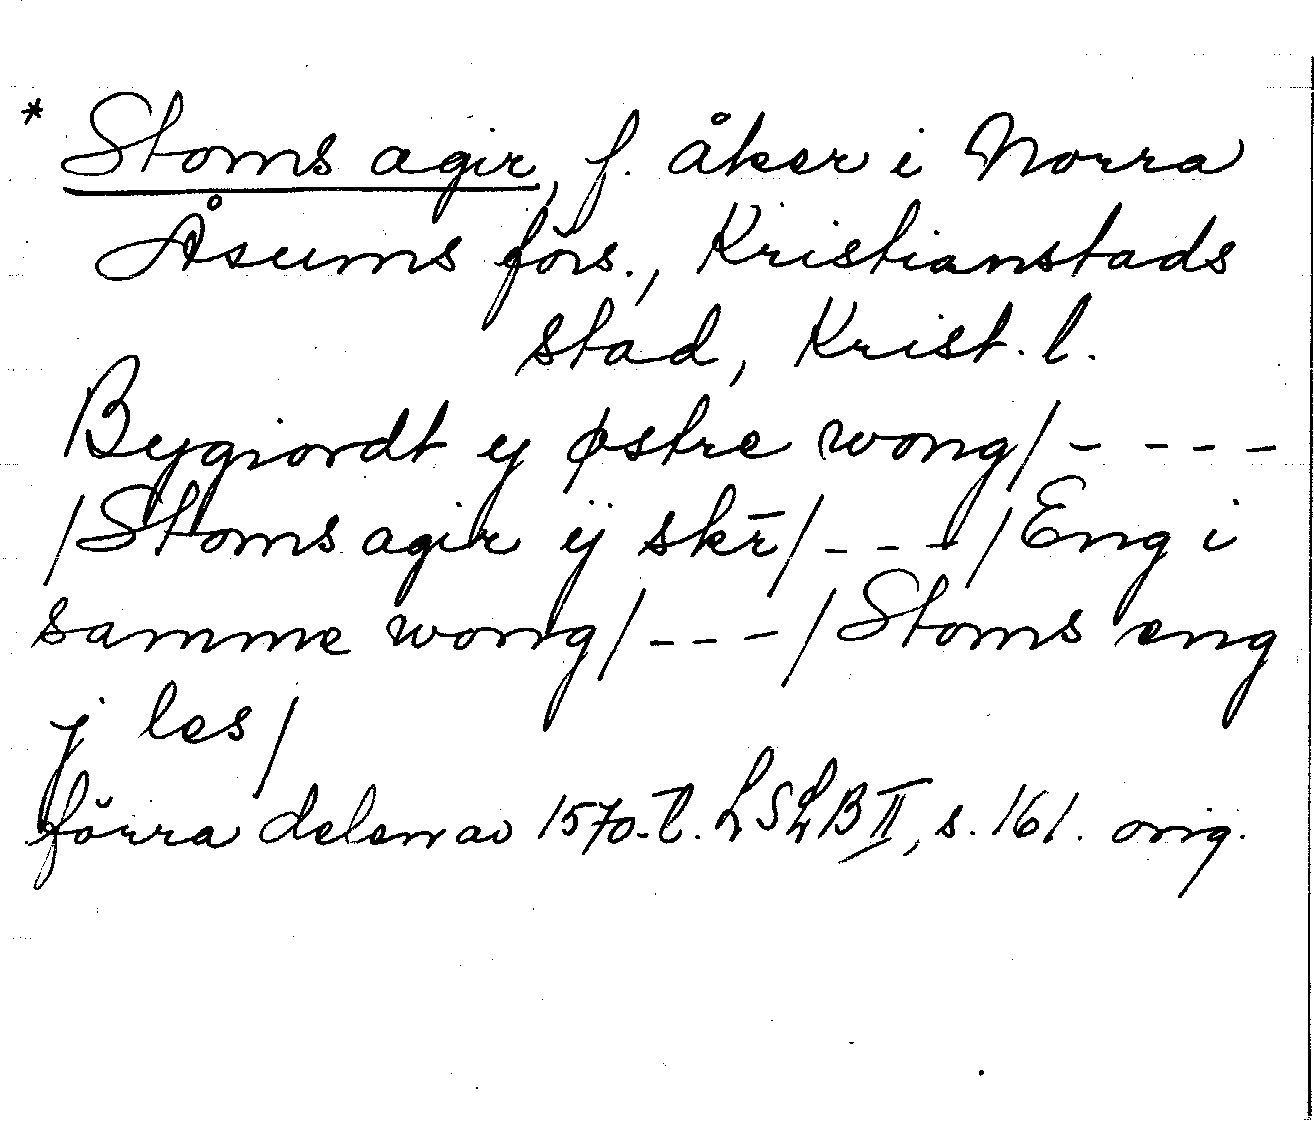 * Stoms agir, f. åker i Norra
Åsums förs., Kristianstads
stad, Krist. l.
Bygiordt ij østre wong/ - - - -
/Stoms agir ij skr̄/ - - - /Eng i
samme wong/ - - - /Stoms eng
j les/
förra delen av 1570-t. LSLB II, s. 161. orig.